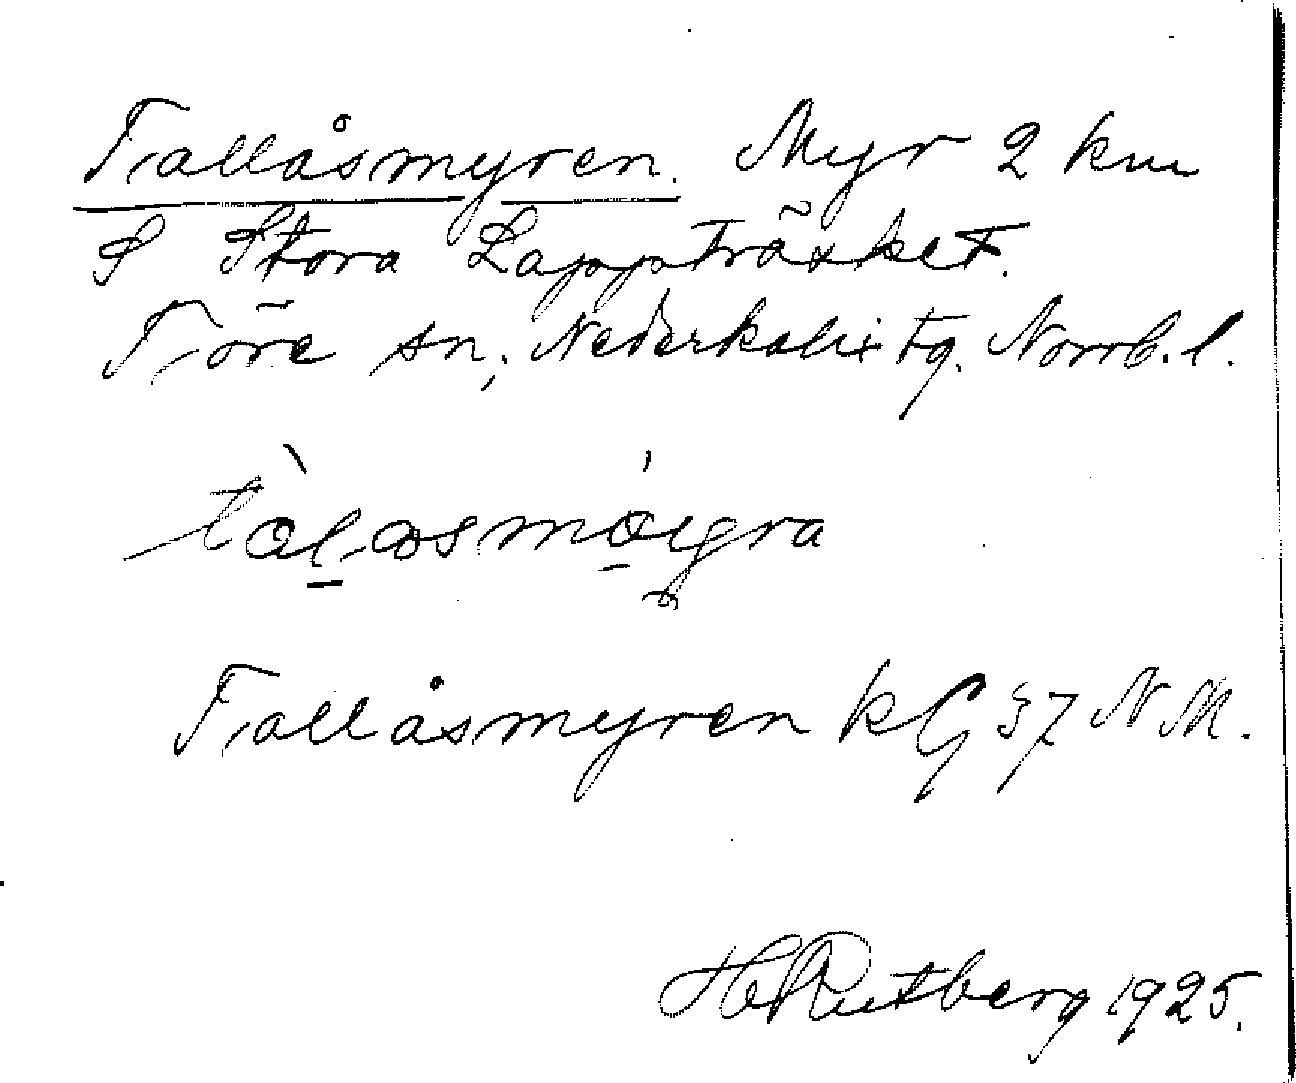 Tallåsmyren. Myr 2 km
S Stora Lappträsket.
Töre sn, Nederkalix tg. Norrb. l.
Tallåsmyren kG 37 N.M.
H Rutberg 1925.